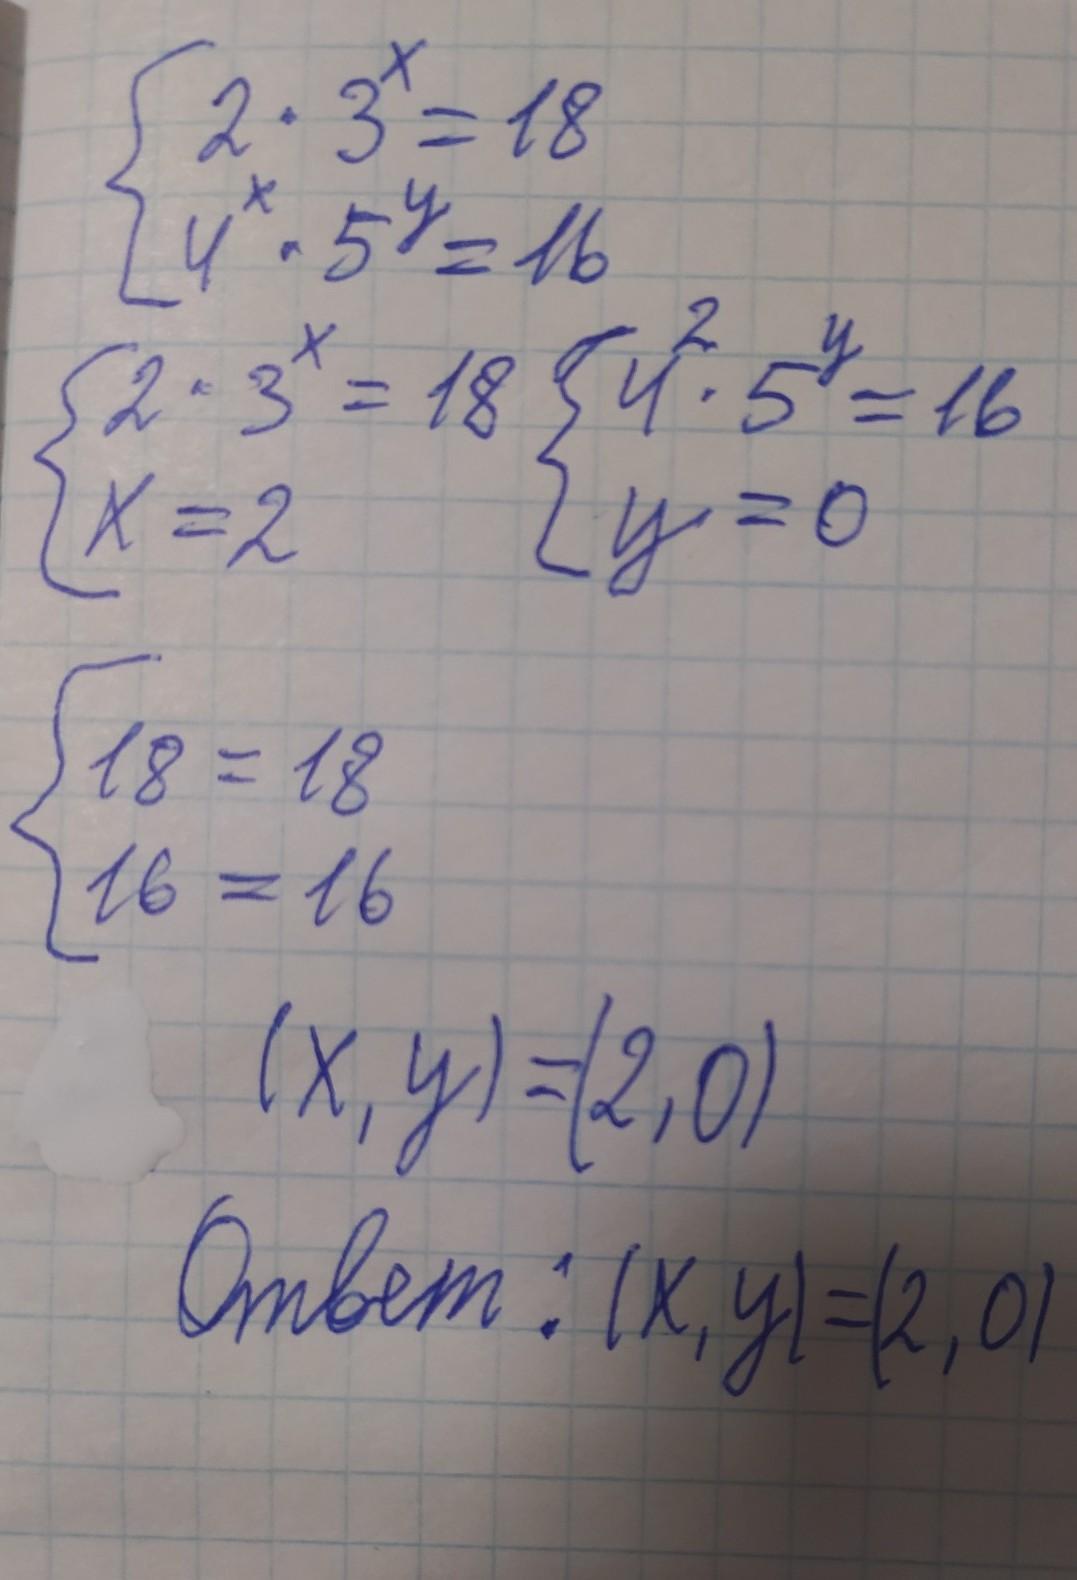 2 · 3^x = 18
4^x · 5^y = 16
2 · 3^x = 18 4^2 · 5^y = 16
x = 2 y = 0
18 = 18
16 = 16
(x, y) = (2, 0)
Ответ : (x, y) = (2, 0)